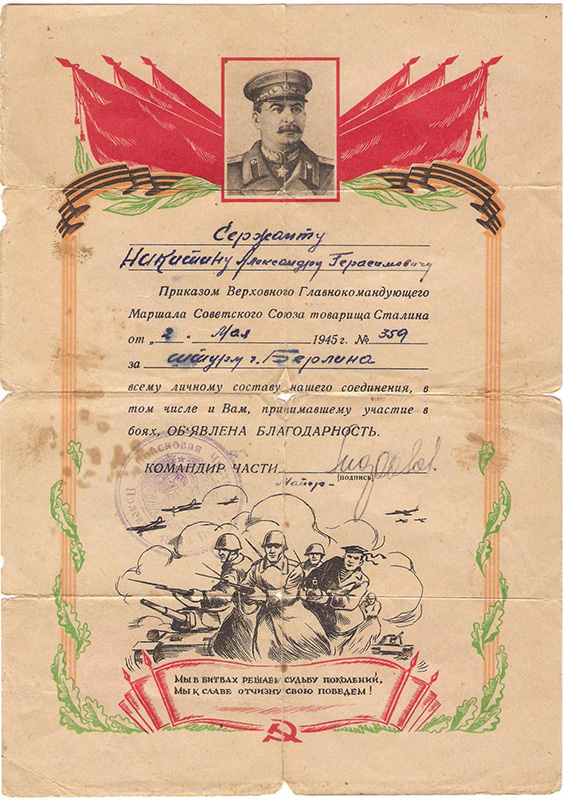 Сержанту
Никитину Александру Герасимовичу
Приказом Верховного Главнокомандующего
Маршала Советского Союза товарища Сталина
от „2“ Мая 1945 г. № 359
за штурм г. Берлина
всему личному составу нашего соединения, в
том числе и Вам, принимавшему участие в
боях, ОБ'ЯВЛЕНА БЛАГОДАРНОСТЬ.
КОМАНДИР ЧАСТИ
Майор-
(подпись)
МЫ В БИТВАХ РЕШАЕМ СУДЬБУ ПОКОЛЕНИЙ,
МЫ К СЛАВЕ ОТЧИЗНУ СВОЮ ПОВЕДЕМ!